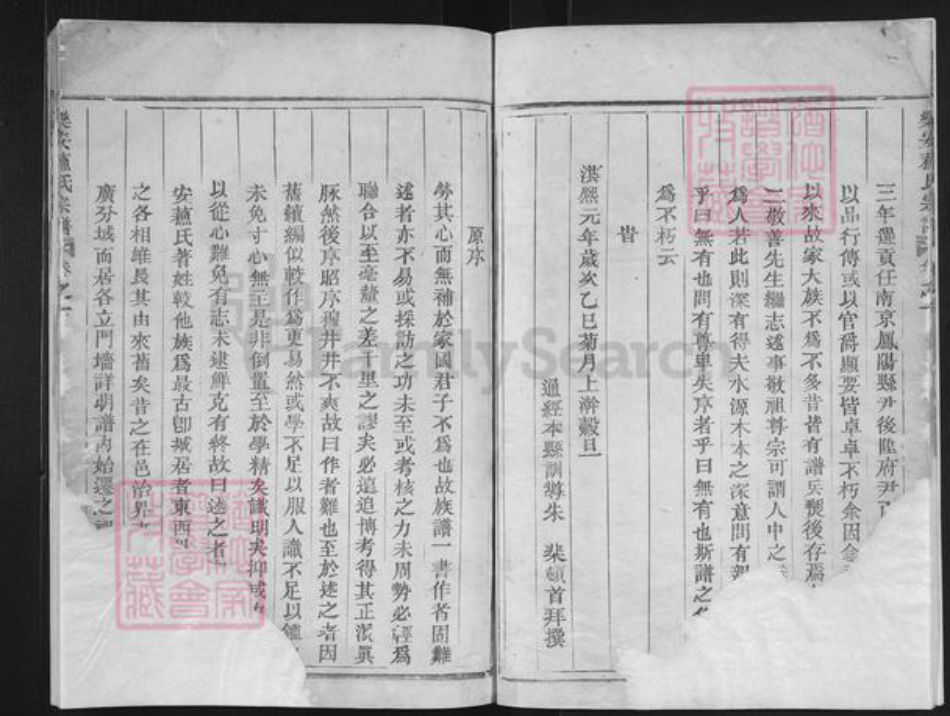 三年選貢任南京鳳陽縣尹後陞府尹
以品行傳或以官爵顯要皆卓卓不朽余因念
以來故家大族不為不多昔皆有譜兵燹後存焉
二敬善先生繼志述事敬祖尊宗可謂人中之
為人若此則深有得夫水源木本之深意問有
乎曰無有也問有尊卑失序者乎曰無有也斯譜之
為不朽云
旹
洪熙元年歲次乙巳菊月上澣穀旦
通經本縣訓導朱 棐頓首拜撰
原序
勞其心而無補於家國君子不為也故族譜一書作者固難
述者亦不易或採訪之功未至或考核之力未周勢必誣為
聯合以至毫釐之差千里之謬矣必遠追博考得其正派真
脉然後序昭序穆井井不爽故曰作者難也至於述之者因
舊續編似較作為更易然或學不足以服人識不足以
未免寸心無主是非倒置至於學精矣識明矣抑或
以從心難免有志未逮鮮克有終故曰述之者
安蘓氏著姓較他族為最古卽城居者東西
之各相維長其由來舊矣昔之在邑治界
廣分域而居各立門墻詳明譜內始遷之
樂安蘓氏宗譜
FamilySearch